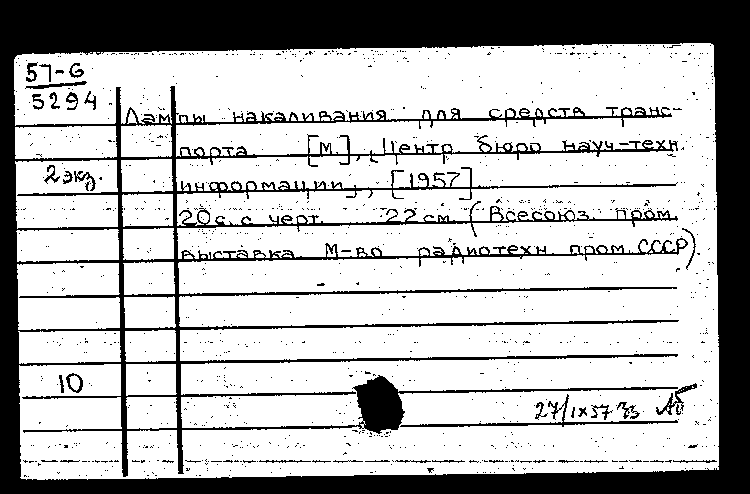 57-6
5294
Лампы накаливания для средств транс-
порта. [М.], „Центр. бюро науч-техн.
2 экз.
информации", [1957].
20 с. с черт. 22 см. (Всесоюз. пром.
выставка. М-во радиотехн. пром. СССР)
10
27/IX 57